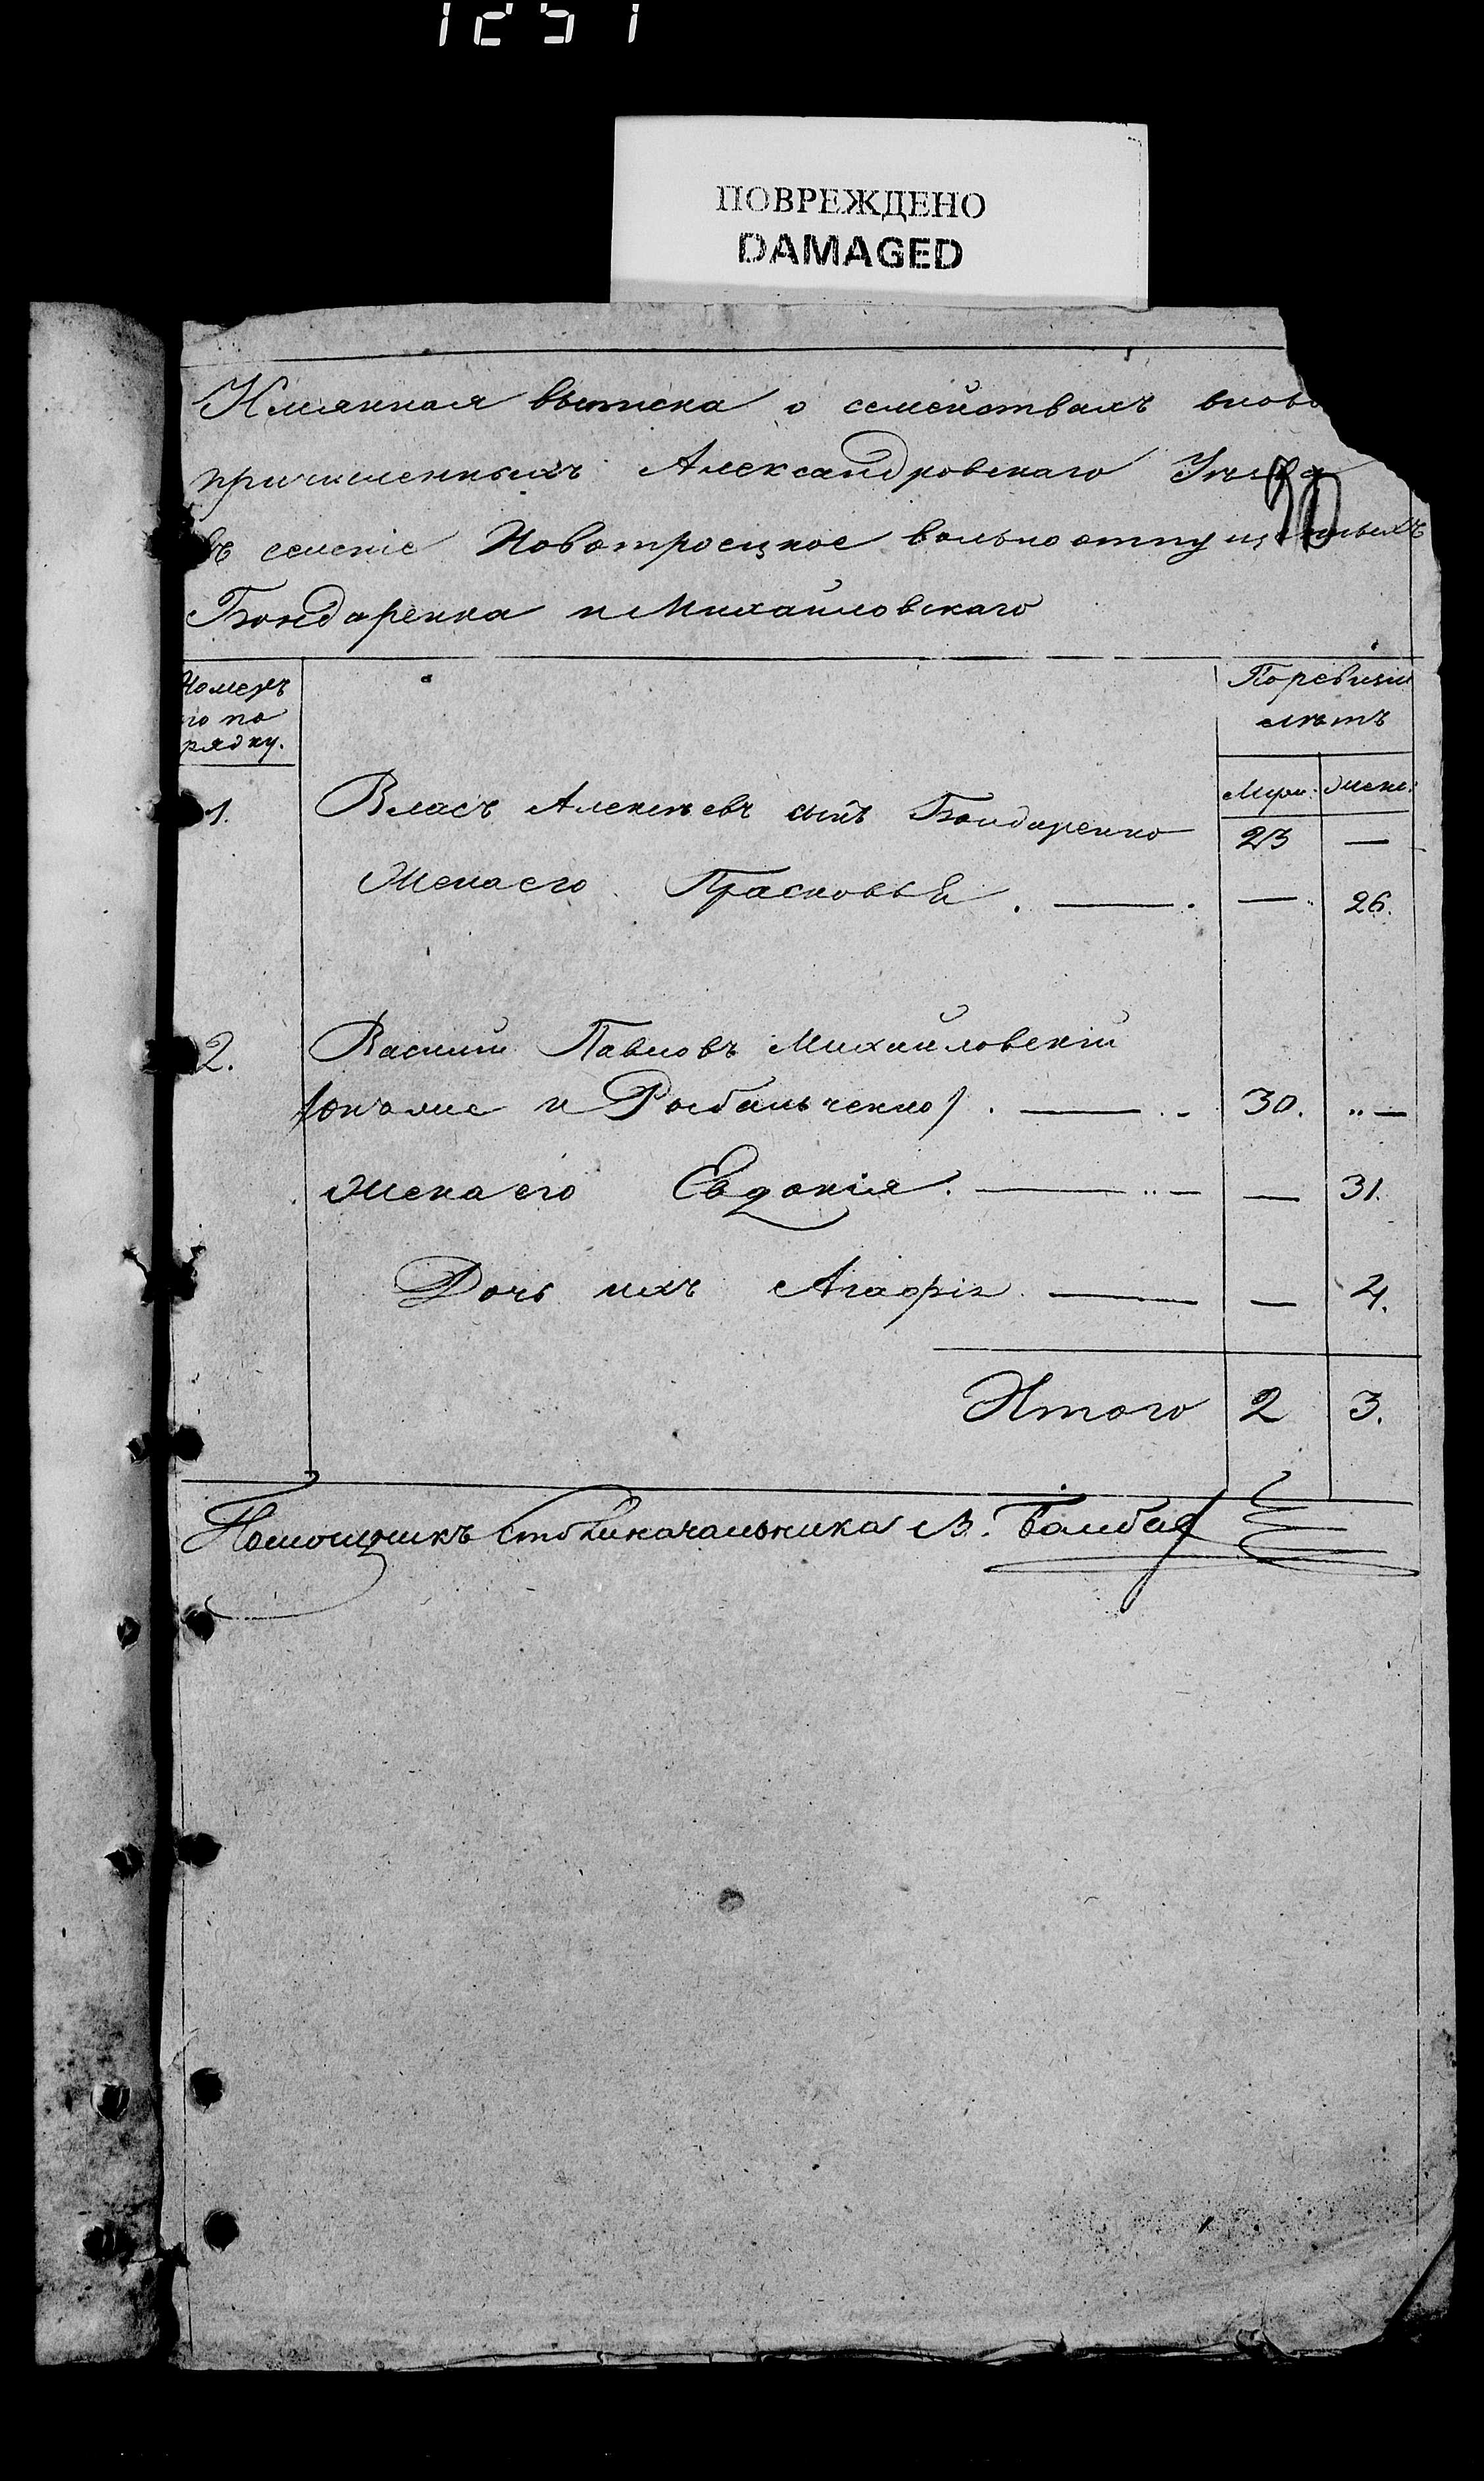 1251
ПОВРЕЖДЕНО
DAMAGED
Имянная выписка о семействахъ вновь
причисленныхъ Александровскаго Уѣзда
въ селеніе Новотроецкое вольно отпущенныхъ
30
Бондаренка и Михайловскаго
Номеръ
по по
рядку.
По ревизіи
лѣтъ
Муж: Женс:
1. Власъ Алексѣевъ сынъ Бондаренко 23 —
Жена его Прасковья . — . — 26.
2. Василій Павловъ Михайловскій
(онъ же и Рыбальченко) . — 30. „ —
Жена его Евдокія . — — 31.
Дочь ихъ Агафія — — 4.
Итого 2 3.
Помощникъ Столоначальника